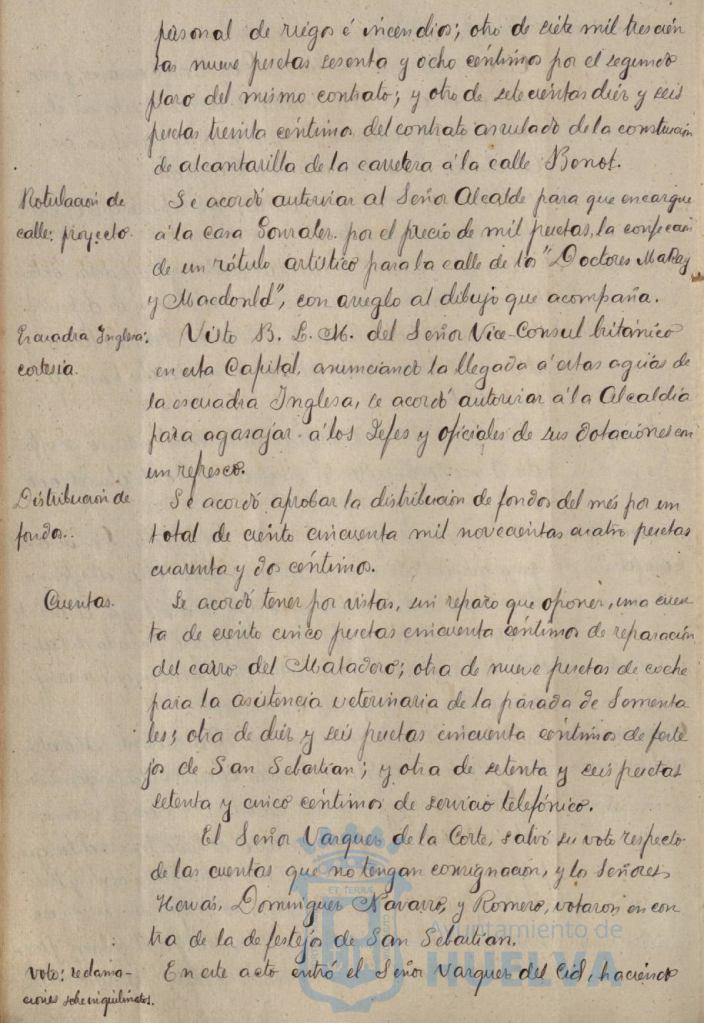 personal de riegos é incendios; otro de siete mil trescien
tas nueve pesetas sesenta y ocho céntimos por el segundo
plazo del mismo contrato; y otro de setecientas diez y seis
pesetas treinta céntimos del contrato anulado de la construcción
de alcantarilla de la carretera á la calle Bonot.
Rotulación de
calle: proyecto.
Se acordó autorizar al Señor Alcalde para que encargue
á la casa Gonzalez por el precio de mil pesetas, la confección
de un rótulo artístico para la calle de los "Doctores Mackay
y Macdonld", con arreglo al dibujo que acompaña.
Escuadra Inglesa:
cortesia.
Visto B. L. M. del Señor Vice-Consul británico
en esta Capital, anunciando la llegada á estas aguas de
la escuadra Inglesa, se acordó autorizar á la Alcaldía
para agasajar á los Jefes y oficiales de sus dotaciones con
un refresco.
Distribución de
fondos..
Se acordó aprobar la distribución de fondos del mes por un
total de ciento cincuenta mil novecientas cuatro pesetas
cuarenta y dos céntimos.
Cuentas.
Se acordó tener por vistas, sin reparo que oponer, una cuen
ta de ciento cinco pesetas cincuenta céntimos de reparación
del carro del Matadero; otra de nueve pesetas de coche
para la asistencia veterinaria de la parada de Sementa
les; otra de diez y seis pesetas cincuenta céntimos de feste
jos de San Sebastian; y otra de setenta y seis pesetas
setenta y cinco céntimos de servicio telefónico.
El Señor Vazquez de la Corte, salvó su voto respecto
de las cuentas que no tengan consignación, y los Señores
Hervás, Dominguez Navarro, y Romero, votaron en con
tra de la de festejos de San Sebastian.
Voto: reclama-
ciones sobre inquilinatos.
En este acto entró el Señor Vazquez del Cid, haciendo
Ayuntamiento de
HUELVA